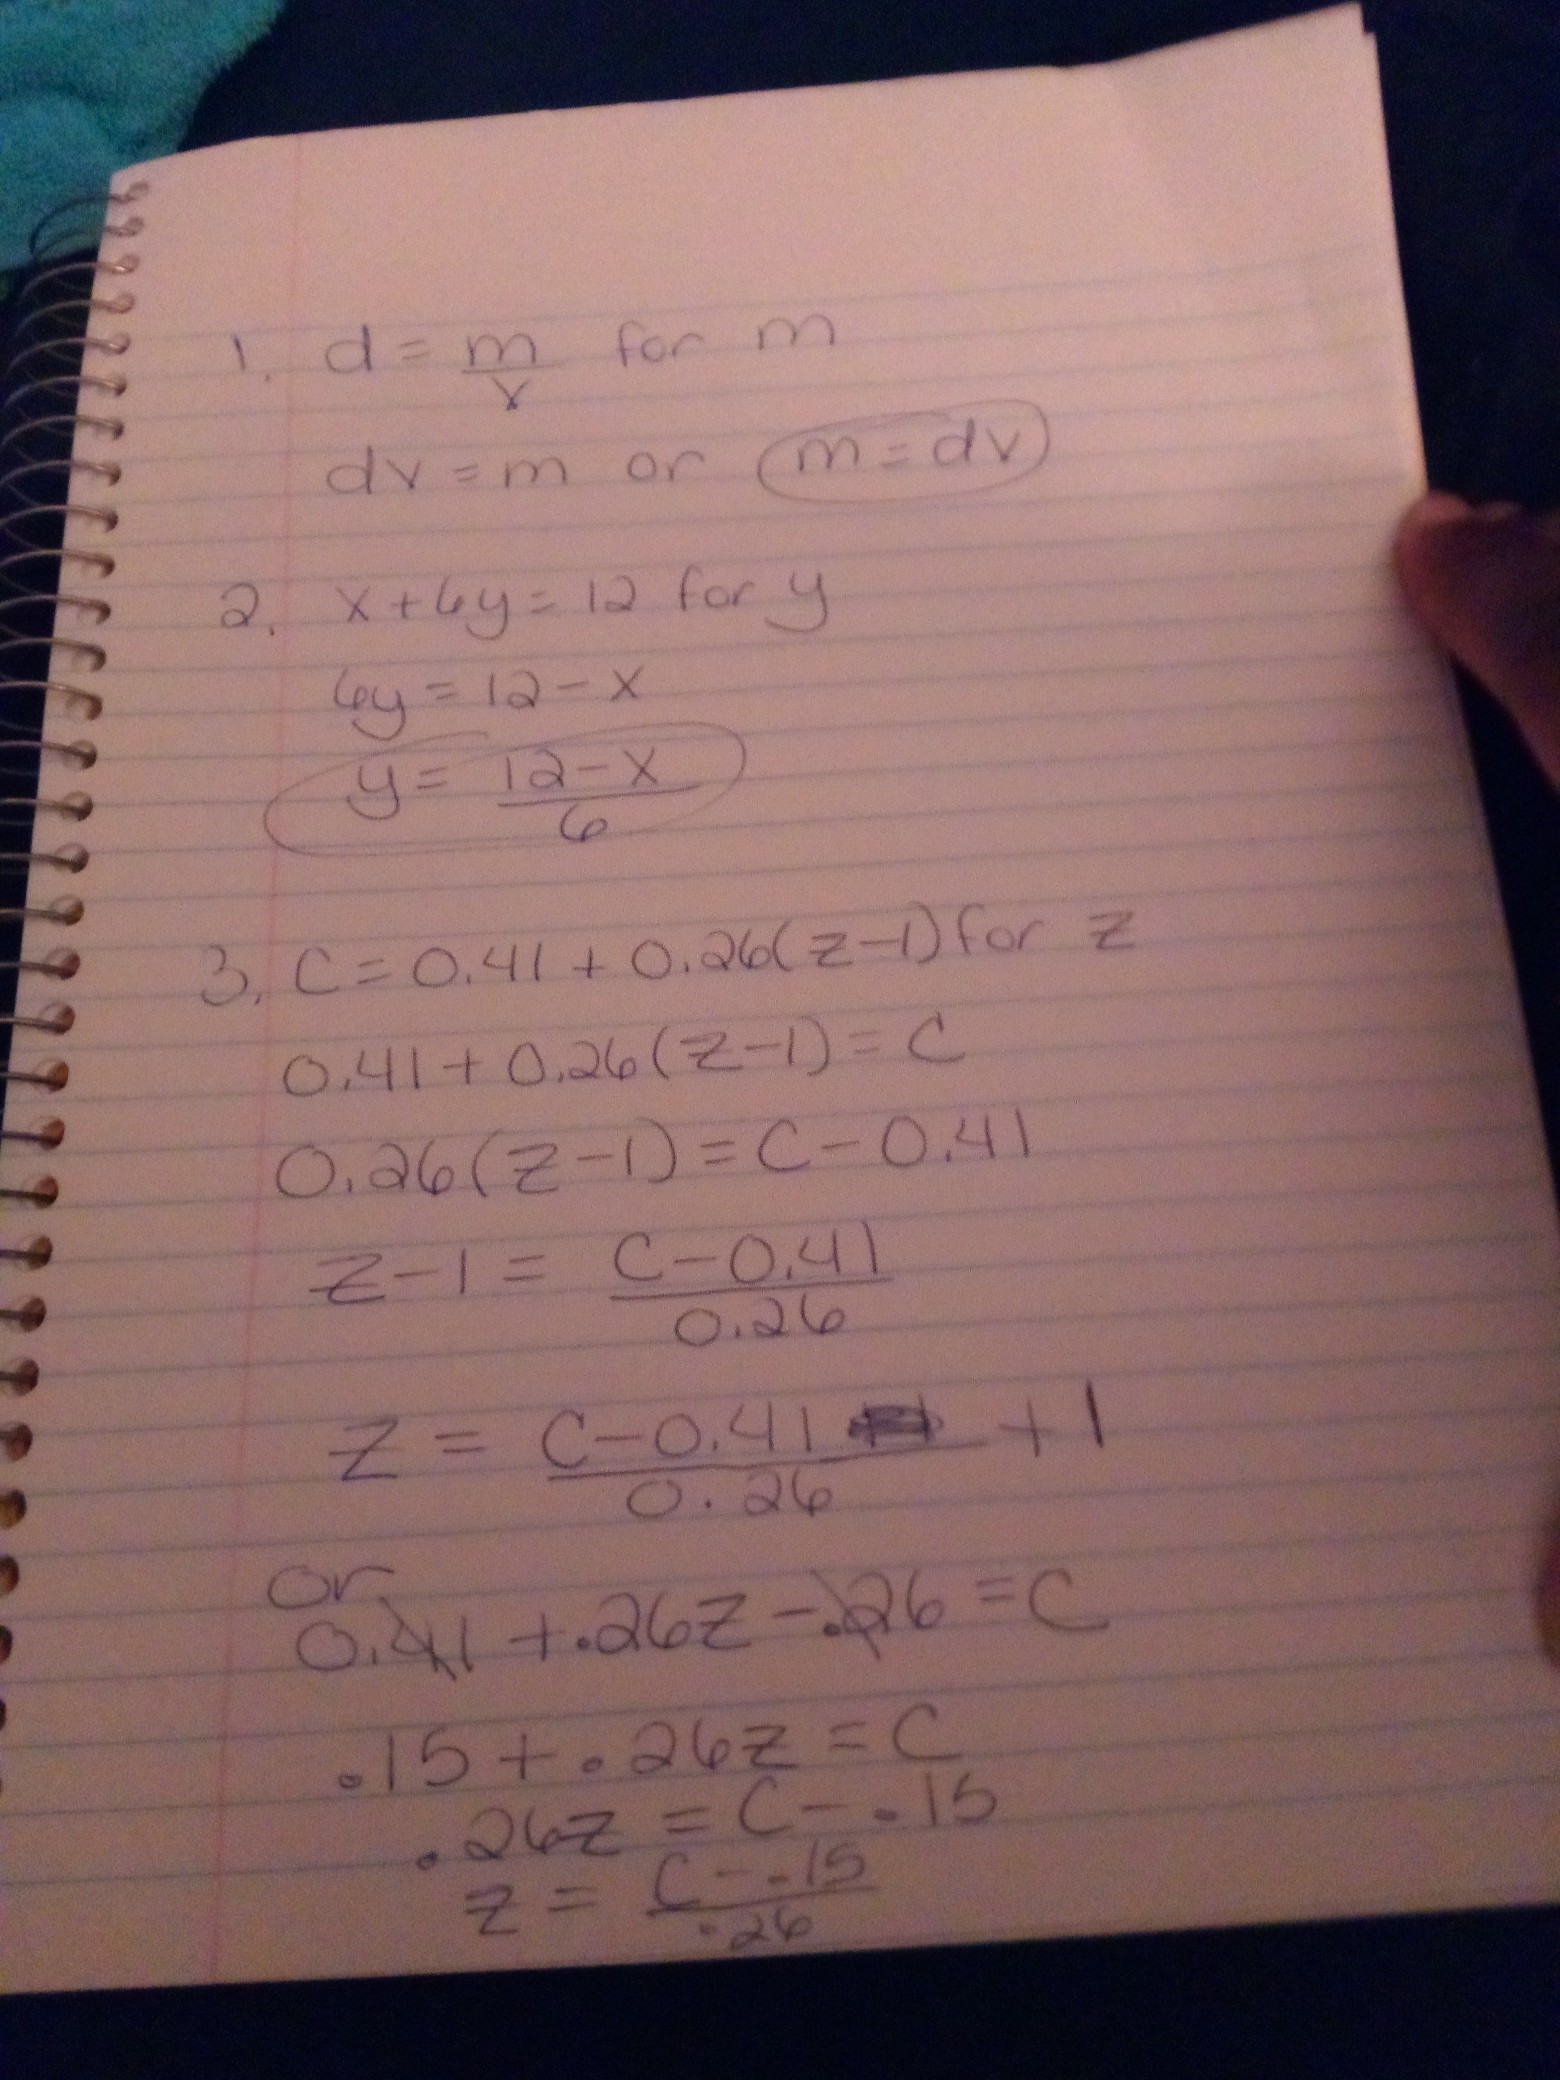 1. d = m/v for m
dv = m or m = dv
2. x + 6y = 12 for y
6y = 12 - x
y = 12 - x / 6
3. C = 0.41 + 0.26(z - 1) for z
0.41 + 0.26(z - 1) = C
0.26(z - 1) = C - 0.41
z - 1 = C - 0.41 / 0.26
z = C - 0.41 / 0.26 + 1
or
0.41 + .26z - .26 = C
.15 + .26z = C
.26z = C - .15
z = C - .15 / .26